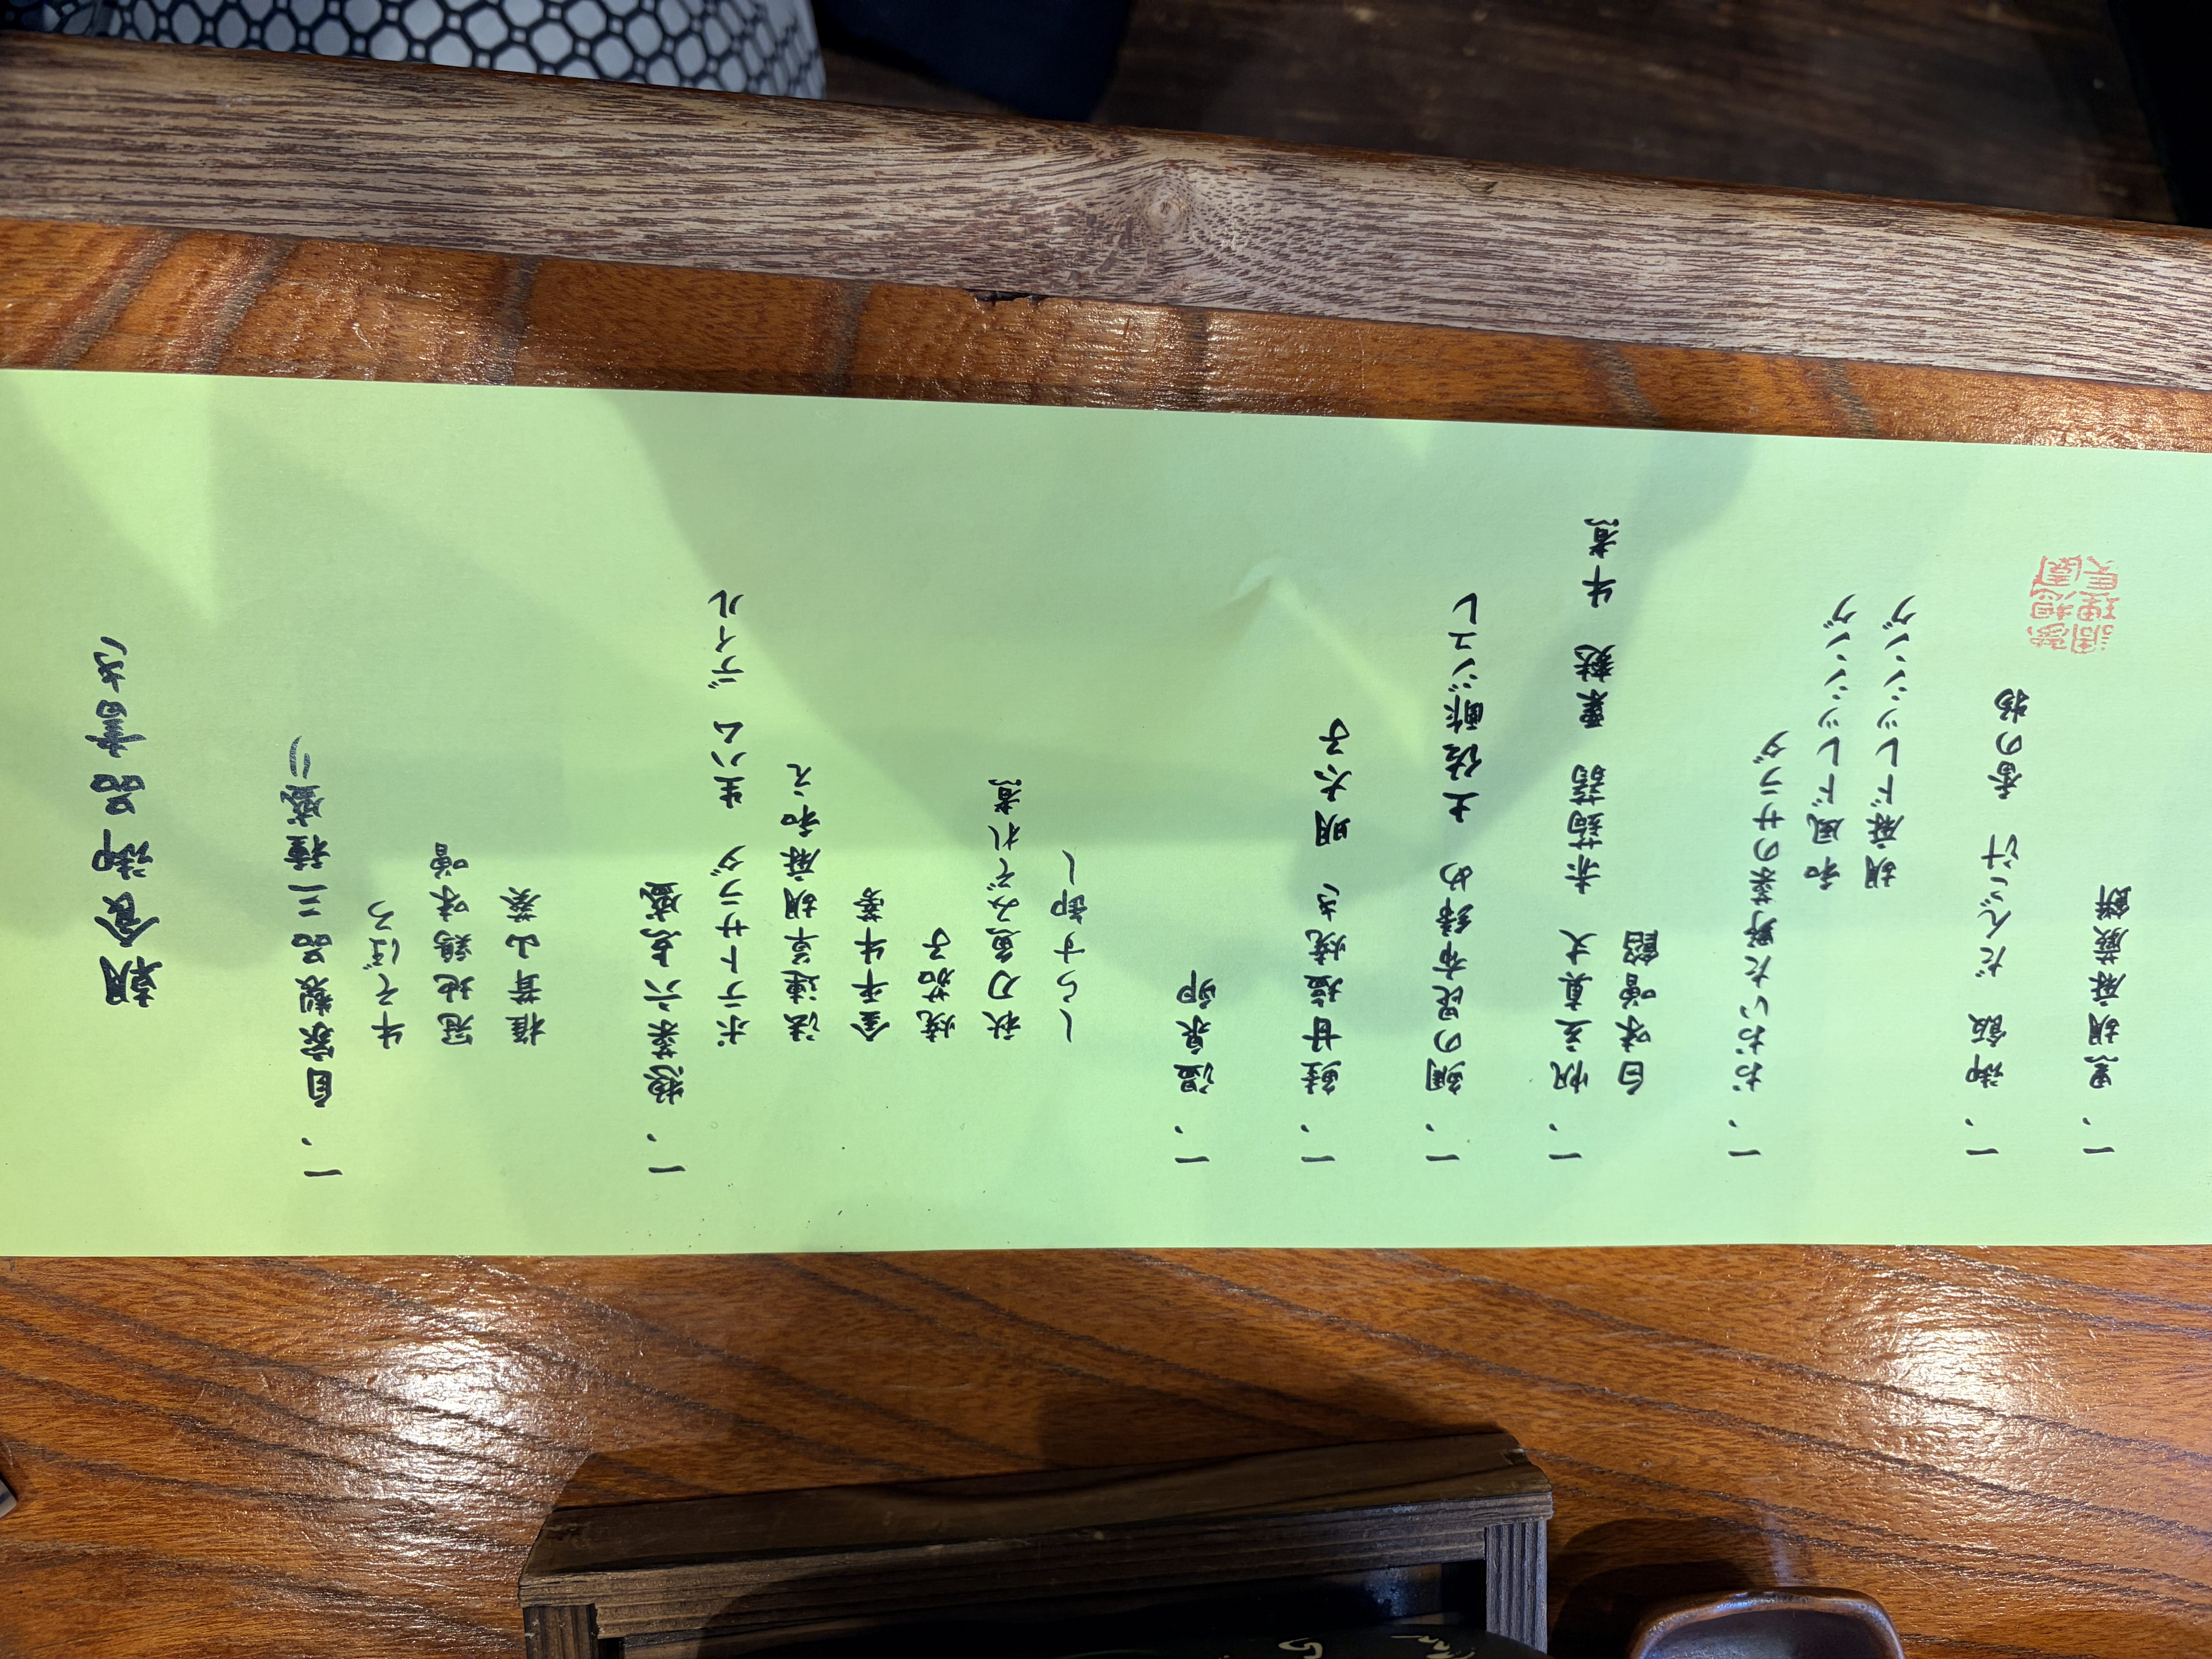 朝食御品書き
一、自家製品三種盛り
牛そぼろ
冠地鶏味噌
椎茸山葵
一、惣菜六点盛
ポテトサラダ 生ハム ディル
法連草胡麻和え
金平牛蒡
焼茄子
秋刀魚みぞれ煮
しらす卸し
一、温泉卵
一、鮭甘塩焼き 明太子
一、鯛の昆布締め 土佐酢ジュレ
一、帆立真丈 赤蒟蒻 粟麩 牛煮
白味噌餡
一、おおいた野菜のサラダ
和風ドレッシング
胡麻ドレッシング
一、御飯 だんご汁 香の物
一、黒胡麻蕨餅
夢想園
調理長